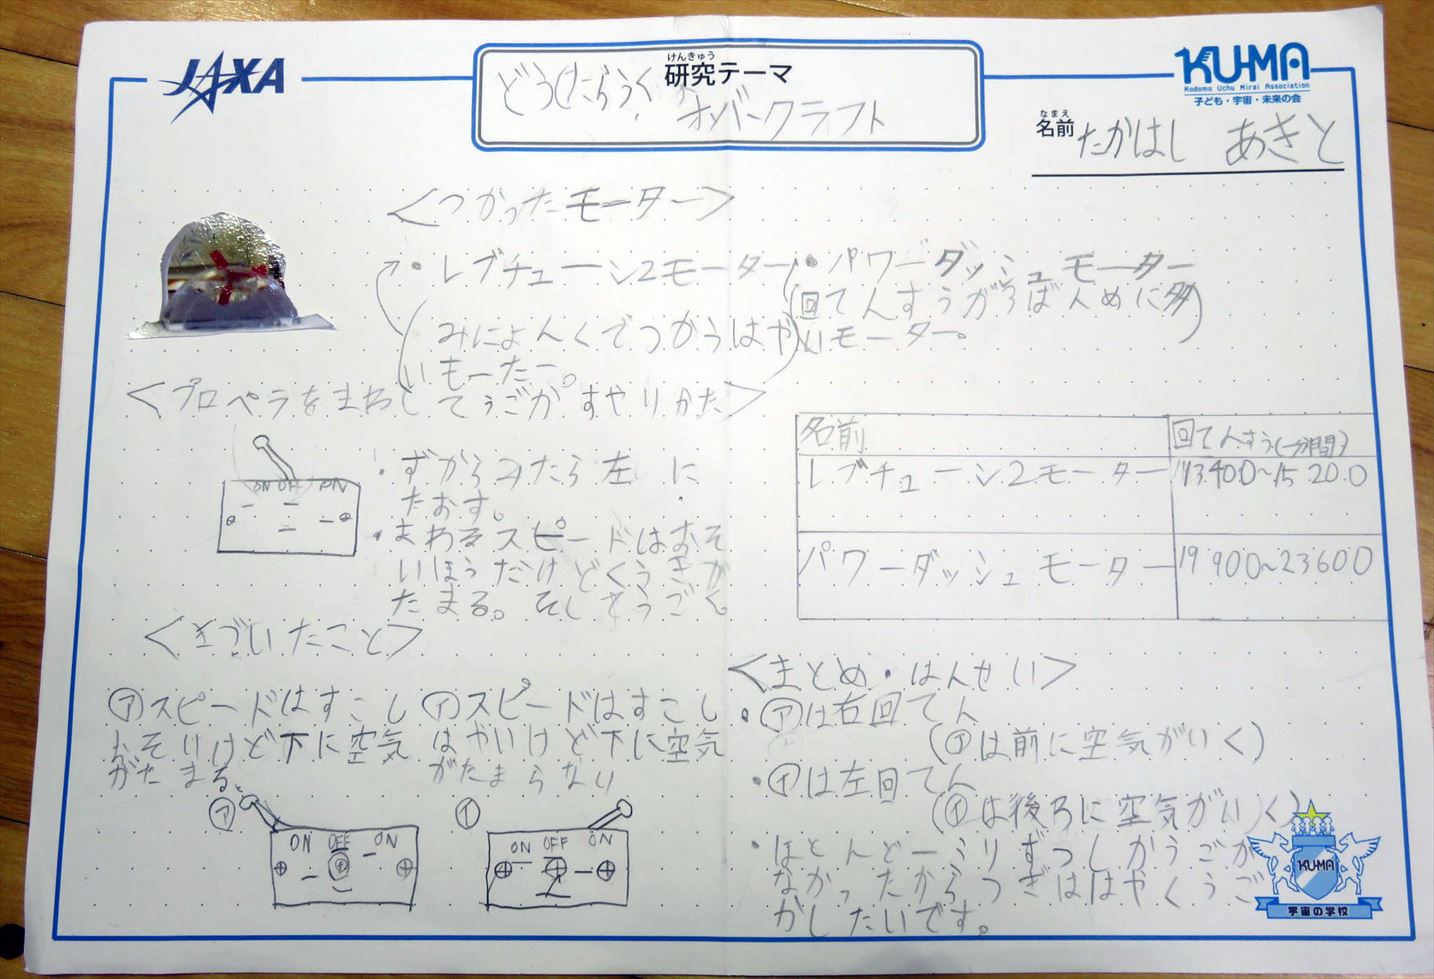 JAXA
けんきゅう
研究テーマ
どうしたらうく
ホバークラフト
KU-MA
Kodomo Uchu Mirai Association
子ども・宇宙・未来の会
なまえ
名前 たかはし あきと
<つかったモーター>
・レブチューン2モーター
(みによんくでつかうはや
いもーたー。)
・パワーダッシュモーター
(回てんすうが3ばんめに多)
いモーター。
<プロペラをまわしてうごかすやりかた>
ON OFF ON
・ずから みたら左に
たおす。
・まわるスピードはおそ
いほうだけどくうきが
たまる。そしてうごく。
名前 回てんすう(一分間)
レブチューン2モーター 13400~15200
パワーダッシュモーター 19900~23600
<きづいたこと>
㋐スピードはすこし
おそいけど下に空気
がたまる。
㋑スピードはすこし
はやいけど下に空気
がたまらない
㋐
ON OFF ON
㋑
ON OFF ON
<まとめ・はんせい>
・㋐は右回てん
(㋐は前に空気がいく)
・㋑は左回てん
(㋑は後ろに空気がいく)
・ほとんど一ミリずつしかうごか
なかったからつぎははやくうご
かしたいです。
KU-MA
宇宙の学校